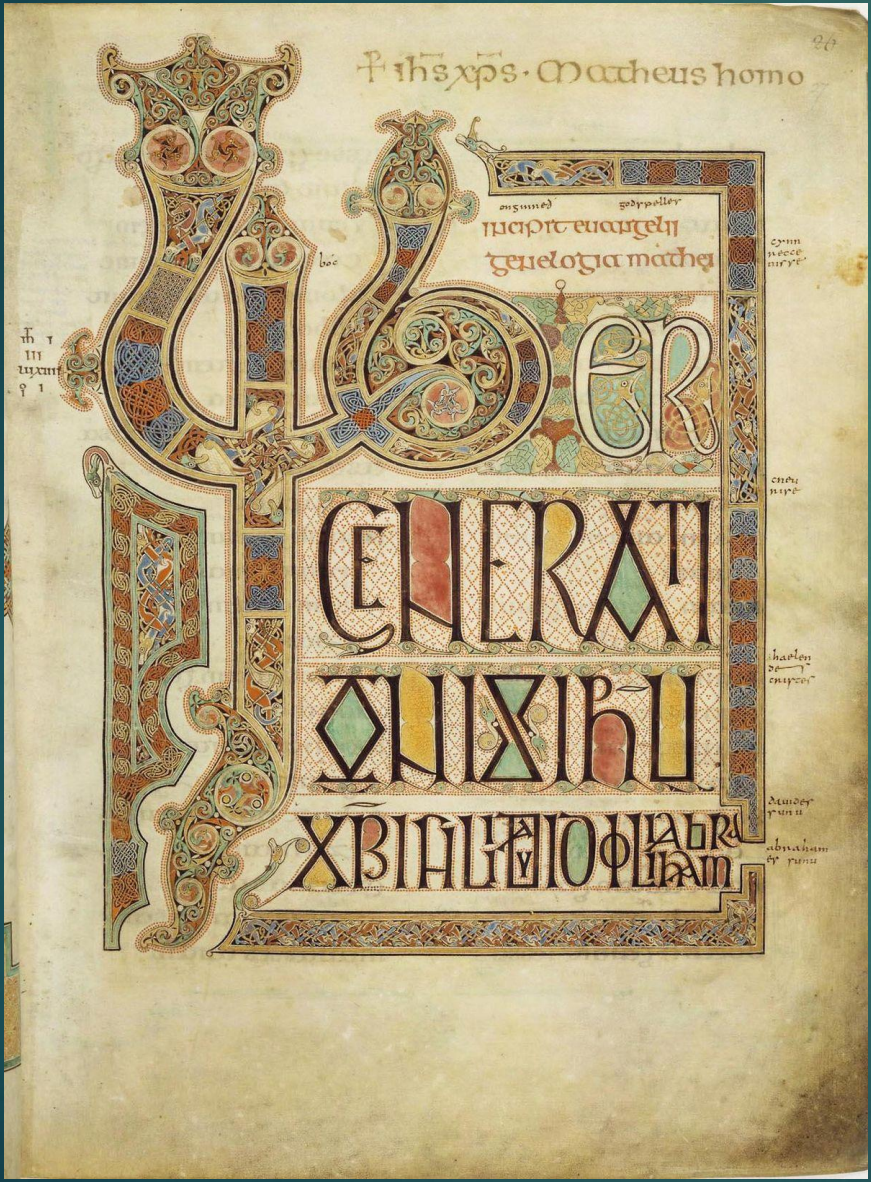 26
+ ihs xps · Matheus homo
onginneð godspelles
incipit euangelii
genelogia mathei
boc
LIBER
GENERATI
ONIS IHU
XPI FILII DAUID FILII ABRAHAM
haelen
des
cristes
dauides
sunu
abraham
es sunu